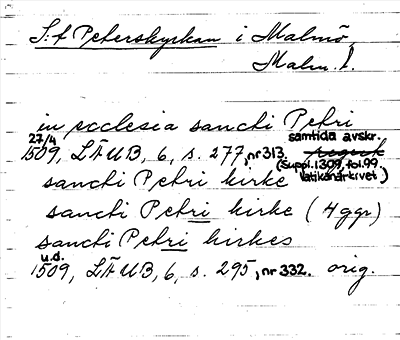 S:t Peterskyrkan i Malmö,
Malm. l.
in ecclesia sancti Petri
27/4 samtida avskr.
1509, LÄUB, 6, s. 277, nr 313
(Suppl. 1309, fol. 99.
sancti Petri kirke Vatikanarkivet)
sancti Petri kirke (4 ggr)
sancti Petri kirkes
u.d.
1509, LÄUB, 6, s. 295, nr 332. orig.